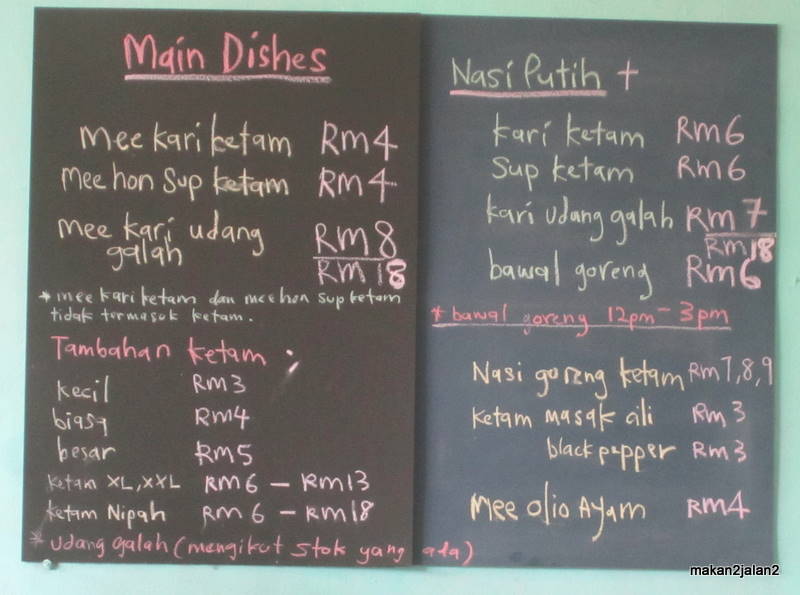 Main Dishes
Mee kari ketam RM4
Mee hon Sup ketam RM4
mee kari udang galah RM8
RM18
* mee kari ketam dan meehon sup ketam
tidak termasuk ketam.
Tambahan ketam :
kecil RM3
biasa RM4
besar RM5
ketam XL, XXL RM6 – RM13
ketam Nipah RM6 – RM18
* udang galah (mengikut stok yang ada)
Nasi Putih +
kari ketam RM6
Sup ketam RM6
kari udang galah RM7
RM18
bawal goreng RM6
* bawal goreng 12pm – 3pm
Nasi goreng ketam RM7,8,9
ketam masak cili RM3
black pepper RM3
Mee olio Ayam RM4
makan2jalan2